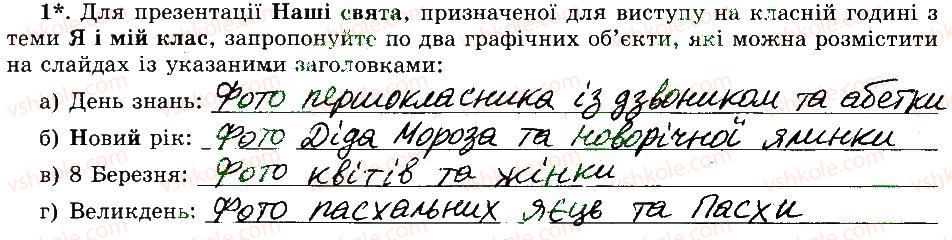 1*. Для презентації Наші свята, призначеної для виступу на класній годині з
теми Я і мій клас, запропонуйте по два графічних об'єкти, які можна розмістити
на слайдах із указаними заголовками:
а) День знань: Фото першокласника із дзвоником та абетки
б) Новий рік: Фото Діда Мороза та новорічної ялинки
в) 8 Березня: Фото квітів та жінки
г) Великдень: Фото пасхальних яєць та Пасхи